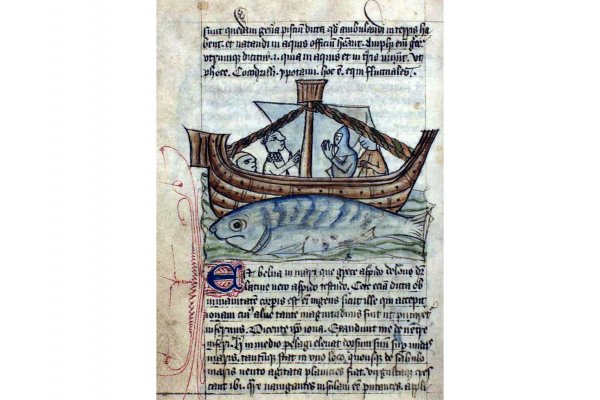 sunt quedam gen̄a pisciū dicta qđ ambulandi in terris ha
bent. et natandi in aquis officiū hēant. Amphi em̄ grec
utrumque dicitur .i. quia in aquis et in t'ris uiuūt. Vt
phoce. Cocodrilli. ypotami. hoc ē equi fluctuales.
Est belua in mari que grece aspido delone dr̄
latine uero aspido testudo. Cete etiā dicta ob
immanitatem corporis est em̄ ingens sicut ille qui accepit
ionam cui' alue tante magnitudinis fuit ut putaret
infernus. Dicente ip̄o iona. Exaudiuit me de uentre
inferi. Hic in medio pelagi eleuat dorsum suum sup undas
maris. tantumque stat in uno loco. quousque de sabulo
maris uento agitata planicies fiat. virgultaque cres
cant ibi. Qr̄ nauigantes insulam eē putantes. appli